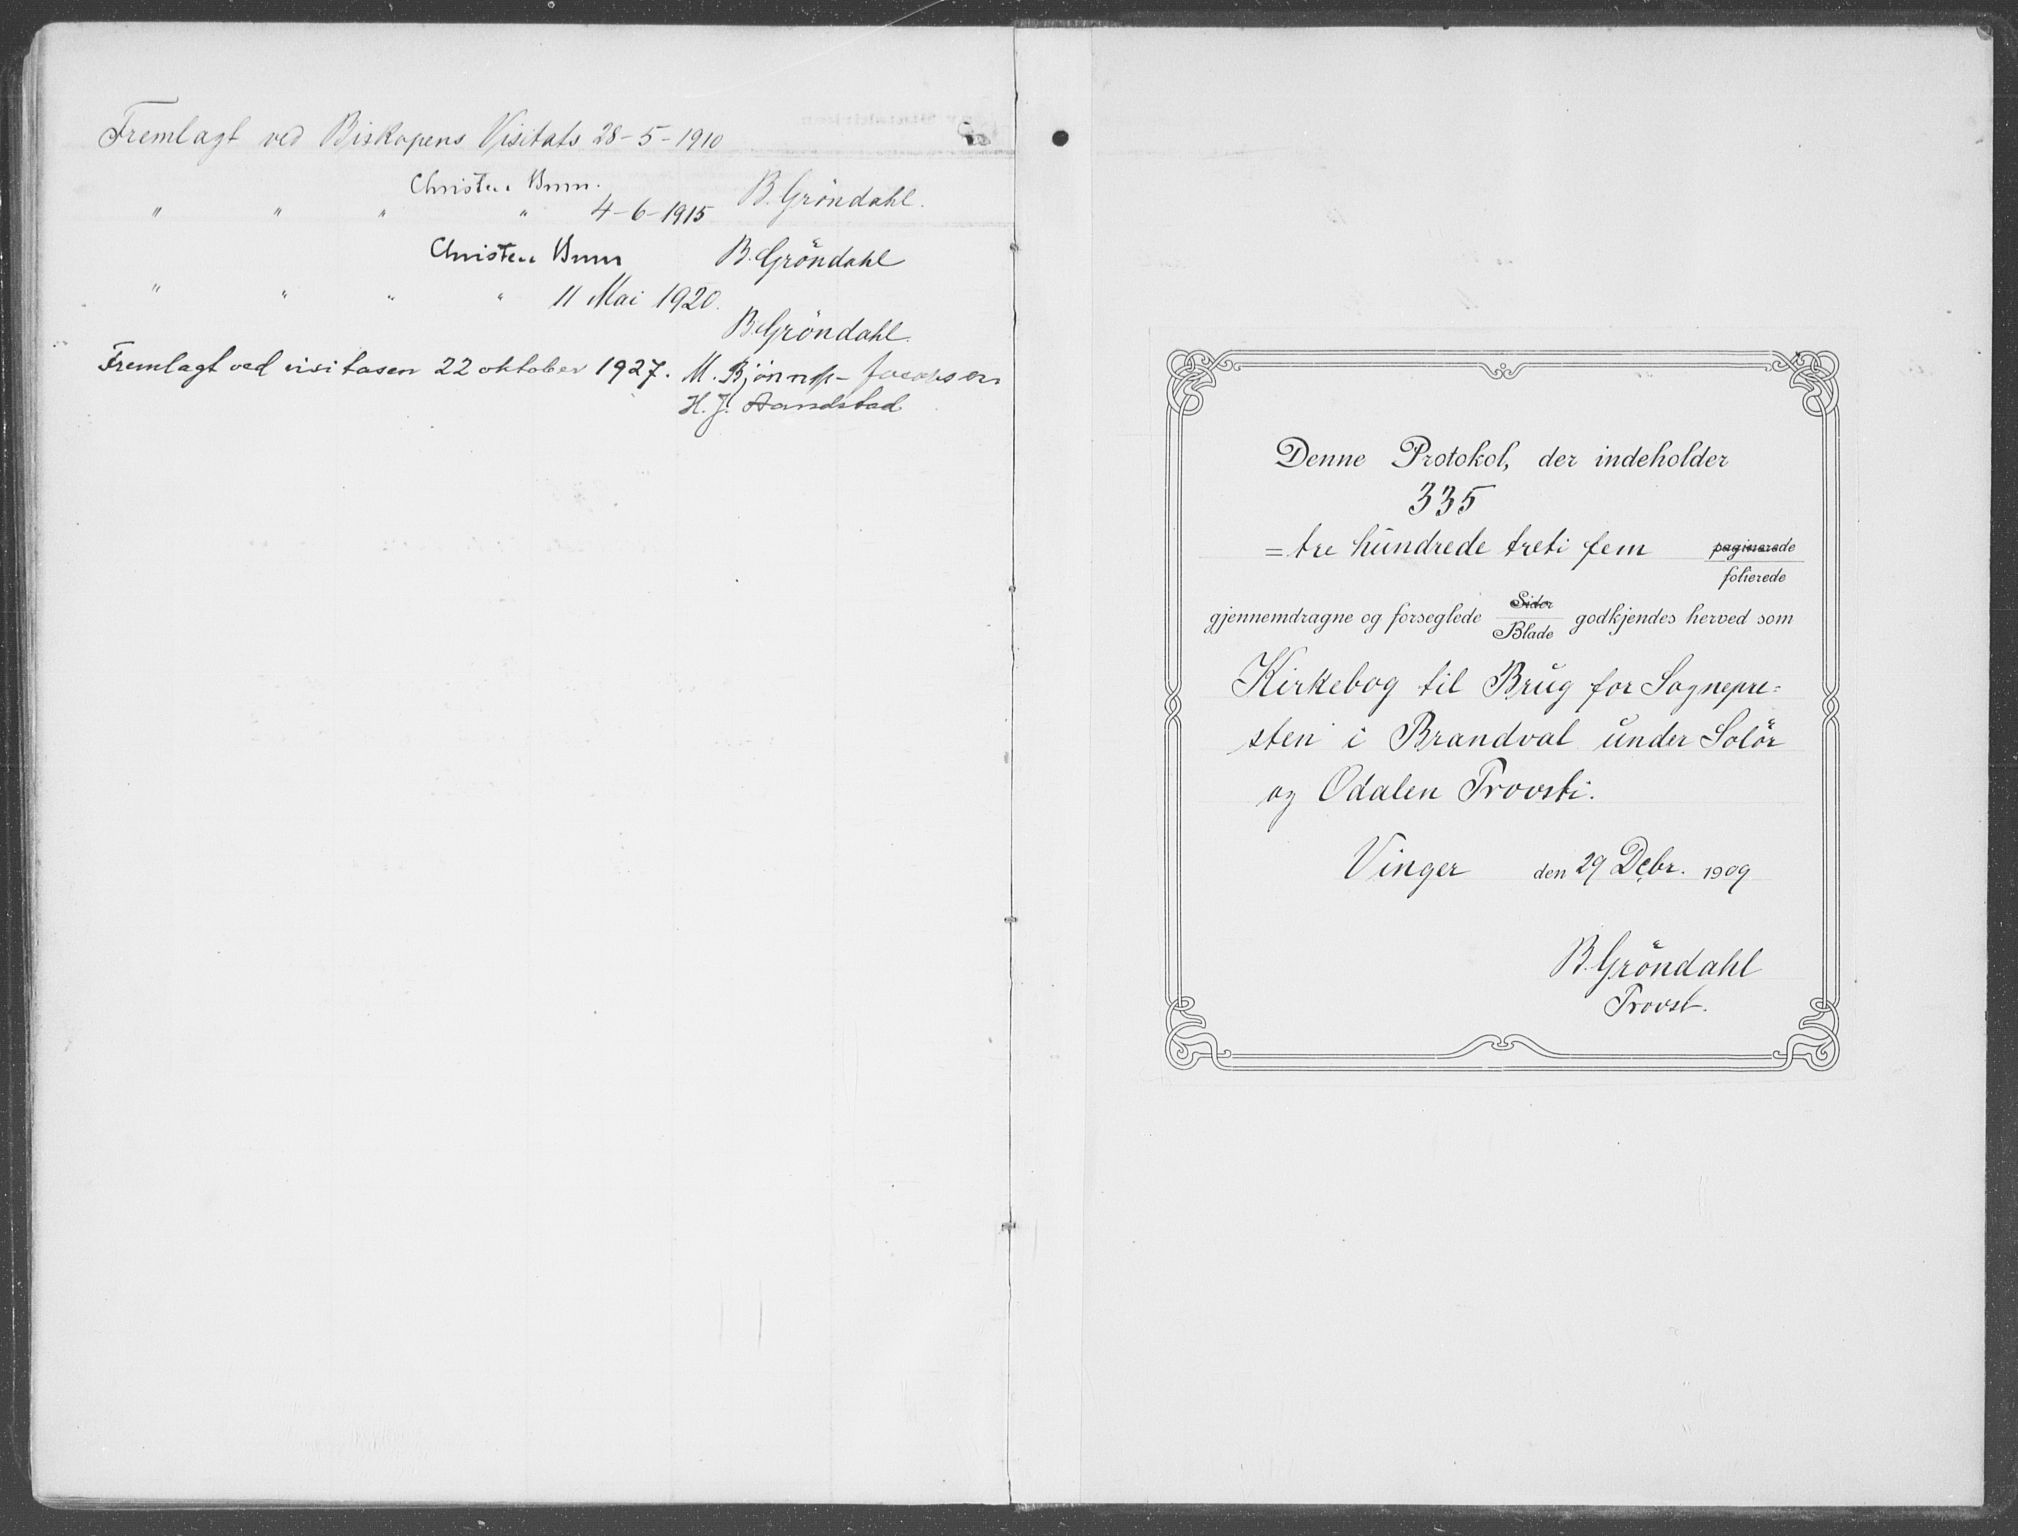 Fremlagt ved Biskopens Visitats 28-5-1910
Christen Brun.
B. Gröndahl.
" " " " 4-6-1915
Christen Brun
B. Gröndahl
" " " " 11 Mai 1920.
B. Gröndahl.
Fremlagt ved visitasen 22 oktober 1927. M. Bjonnes-Jacobsen
H. J. Aandstad
Denne Protokol, der indeholder
335
= tre hundrede treti fem paginerede
folierede
gjennemdragne og forseglede Sider
Blade godkjendes herved som
Kirkebog til Brug for Sognepre=
sten i Brandval under Solör
og Odalen Provsti.
Vinger den 29 Debr. 1909
B. Gröndahl
Provst.